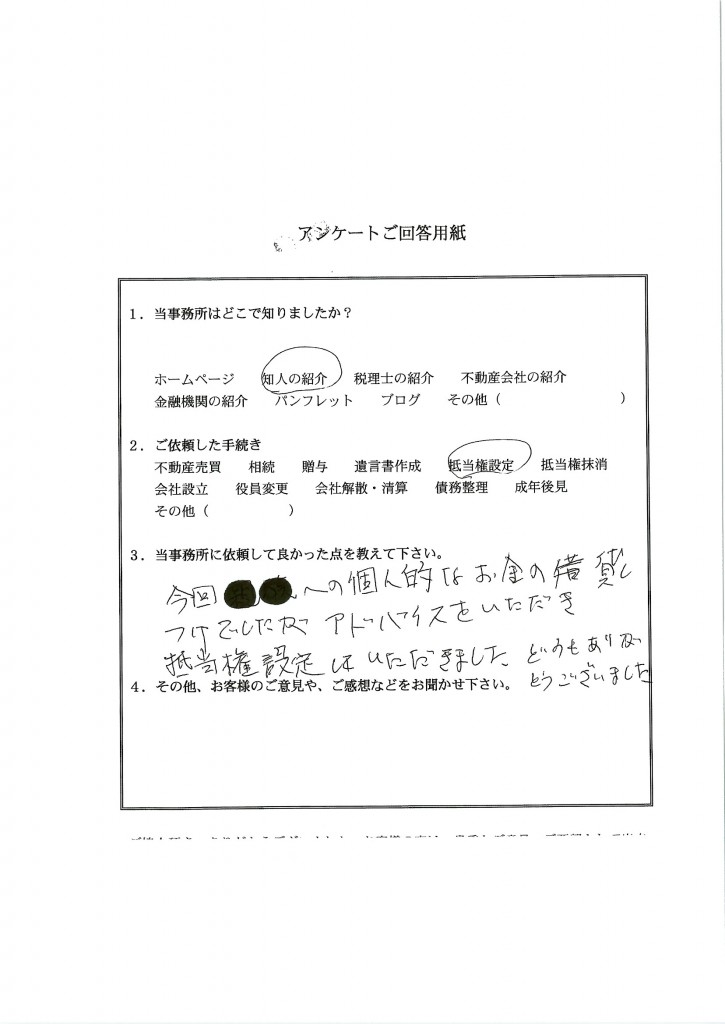 アンケートご回答用紙
１．当事務所はどこで知りましたか？
ホームページ　知人の紹介　税理士の紹介　不動産会社の紹介
金融機関の紹介　パンフレット　ブログ　その他（　　　　　）
２．ご依頼した手続き
不動産売買　相続　贈与　遺言書作成　抵当権設定　抵当権抹消
会社設立　役員変更　会社解散・清算　債務整理　成年後見
その他（　　　　　）
３．当事務所に依頼して良かった点を教えて下さい。
今回　への個人的なお金の借貸し
つけでしたが アドバイスをいただき
抵当権設定はいただきました どうもありが
とうございました
４．その他、お客様のご意見や、ご感想などをお聞かせ下さい。